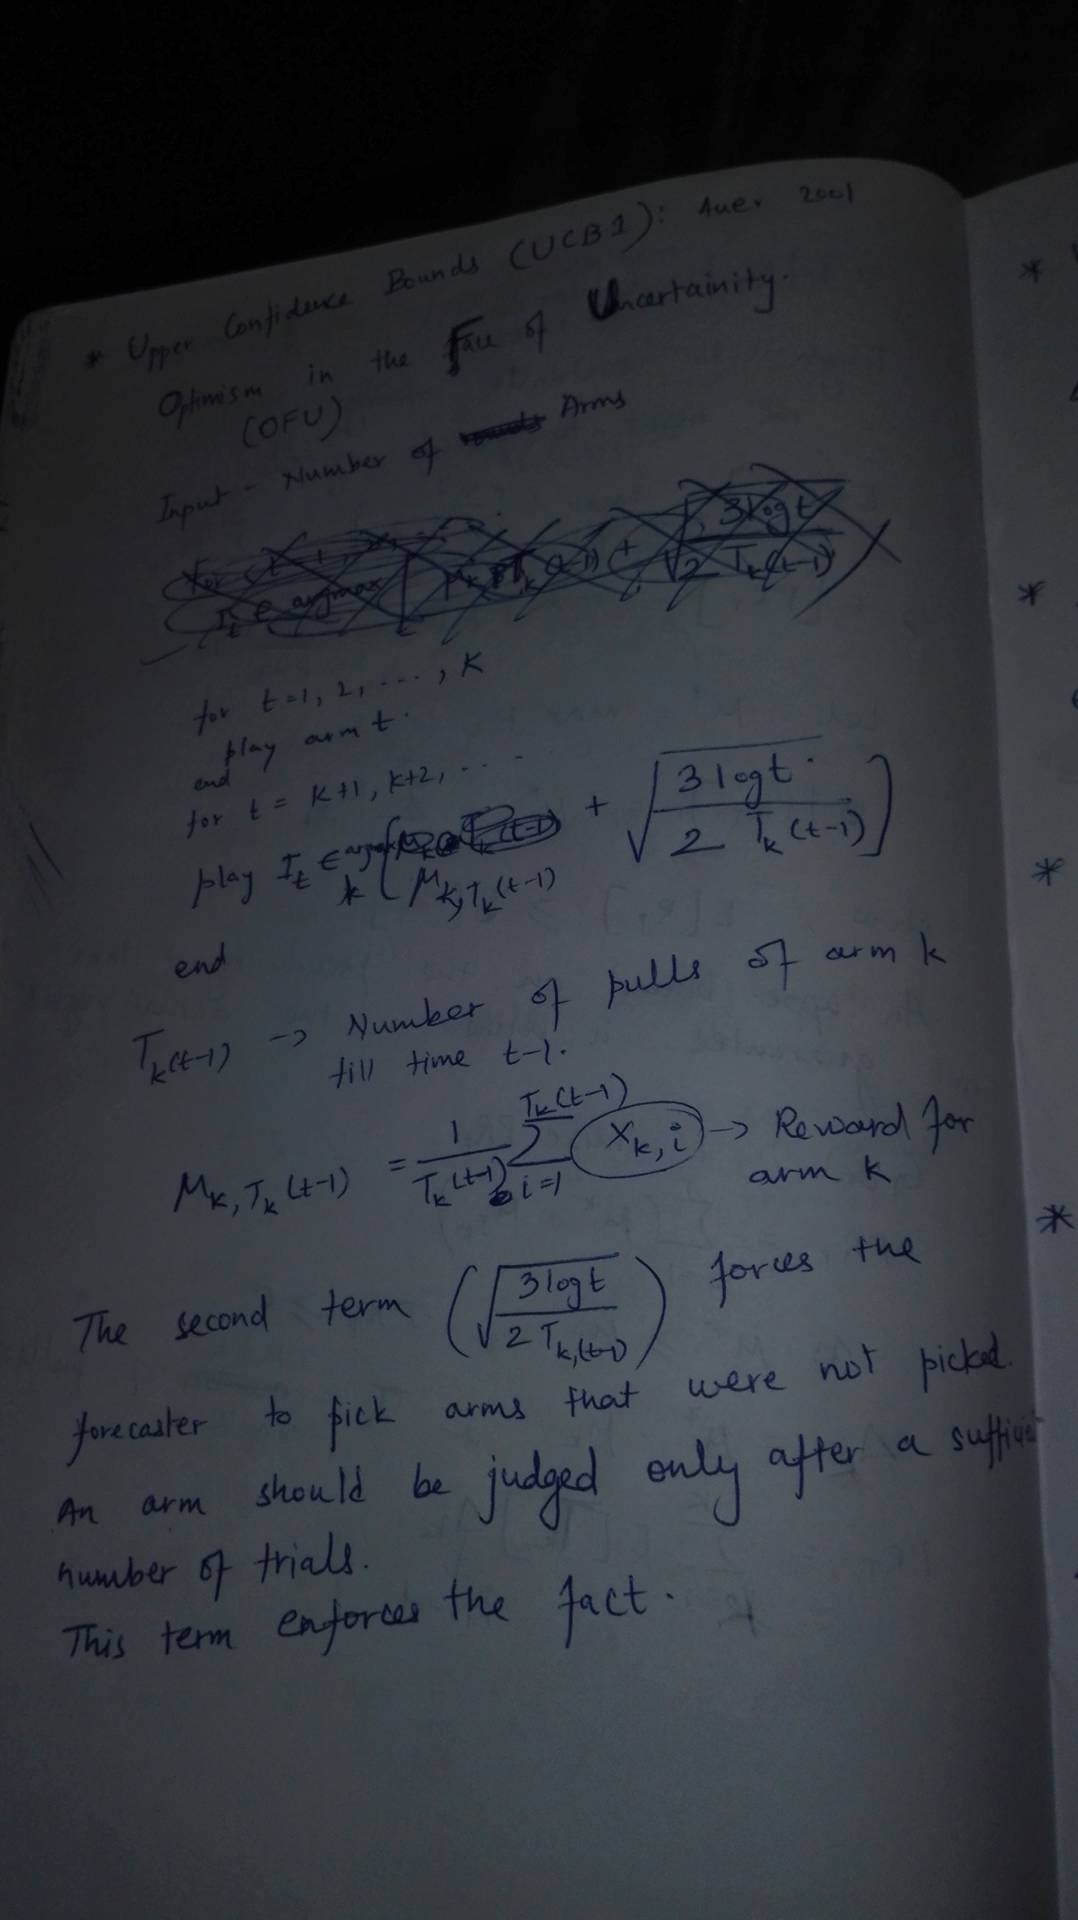 * Upper Confidence Bounds (UCB1): Auer 2001
Optimism in the Face of Uncertainity.
(OFU)
Input - Number of Arms
for t=1, 2, ..., K
play arm t.
end
for t = K+1, K+2, ...
play I_t ∈ argmax_k [ μ_{k,T_k(t-1)} + √(3 log t / 2 T_k(t-1)) ]
end
T_k(t-1) → Number of pulls of arm k
till time t-1.
μ_{k,T_k(t-1)} = 1/T_k(t-1) Σ_{i=1}^{T_k(t-1)} X_{k,i} → Reward for
arm k
The second term (√(3 log t / 2 T_{k,(t-1)})) forces the
forecaster to pick arms that were not picked.
An arm should be judged only after a
number of trials.
This term enforces the fact.